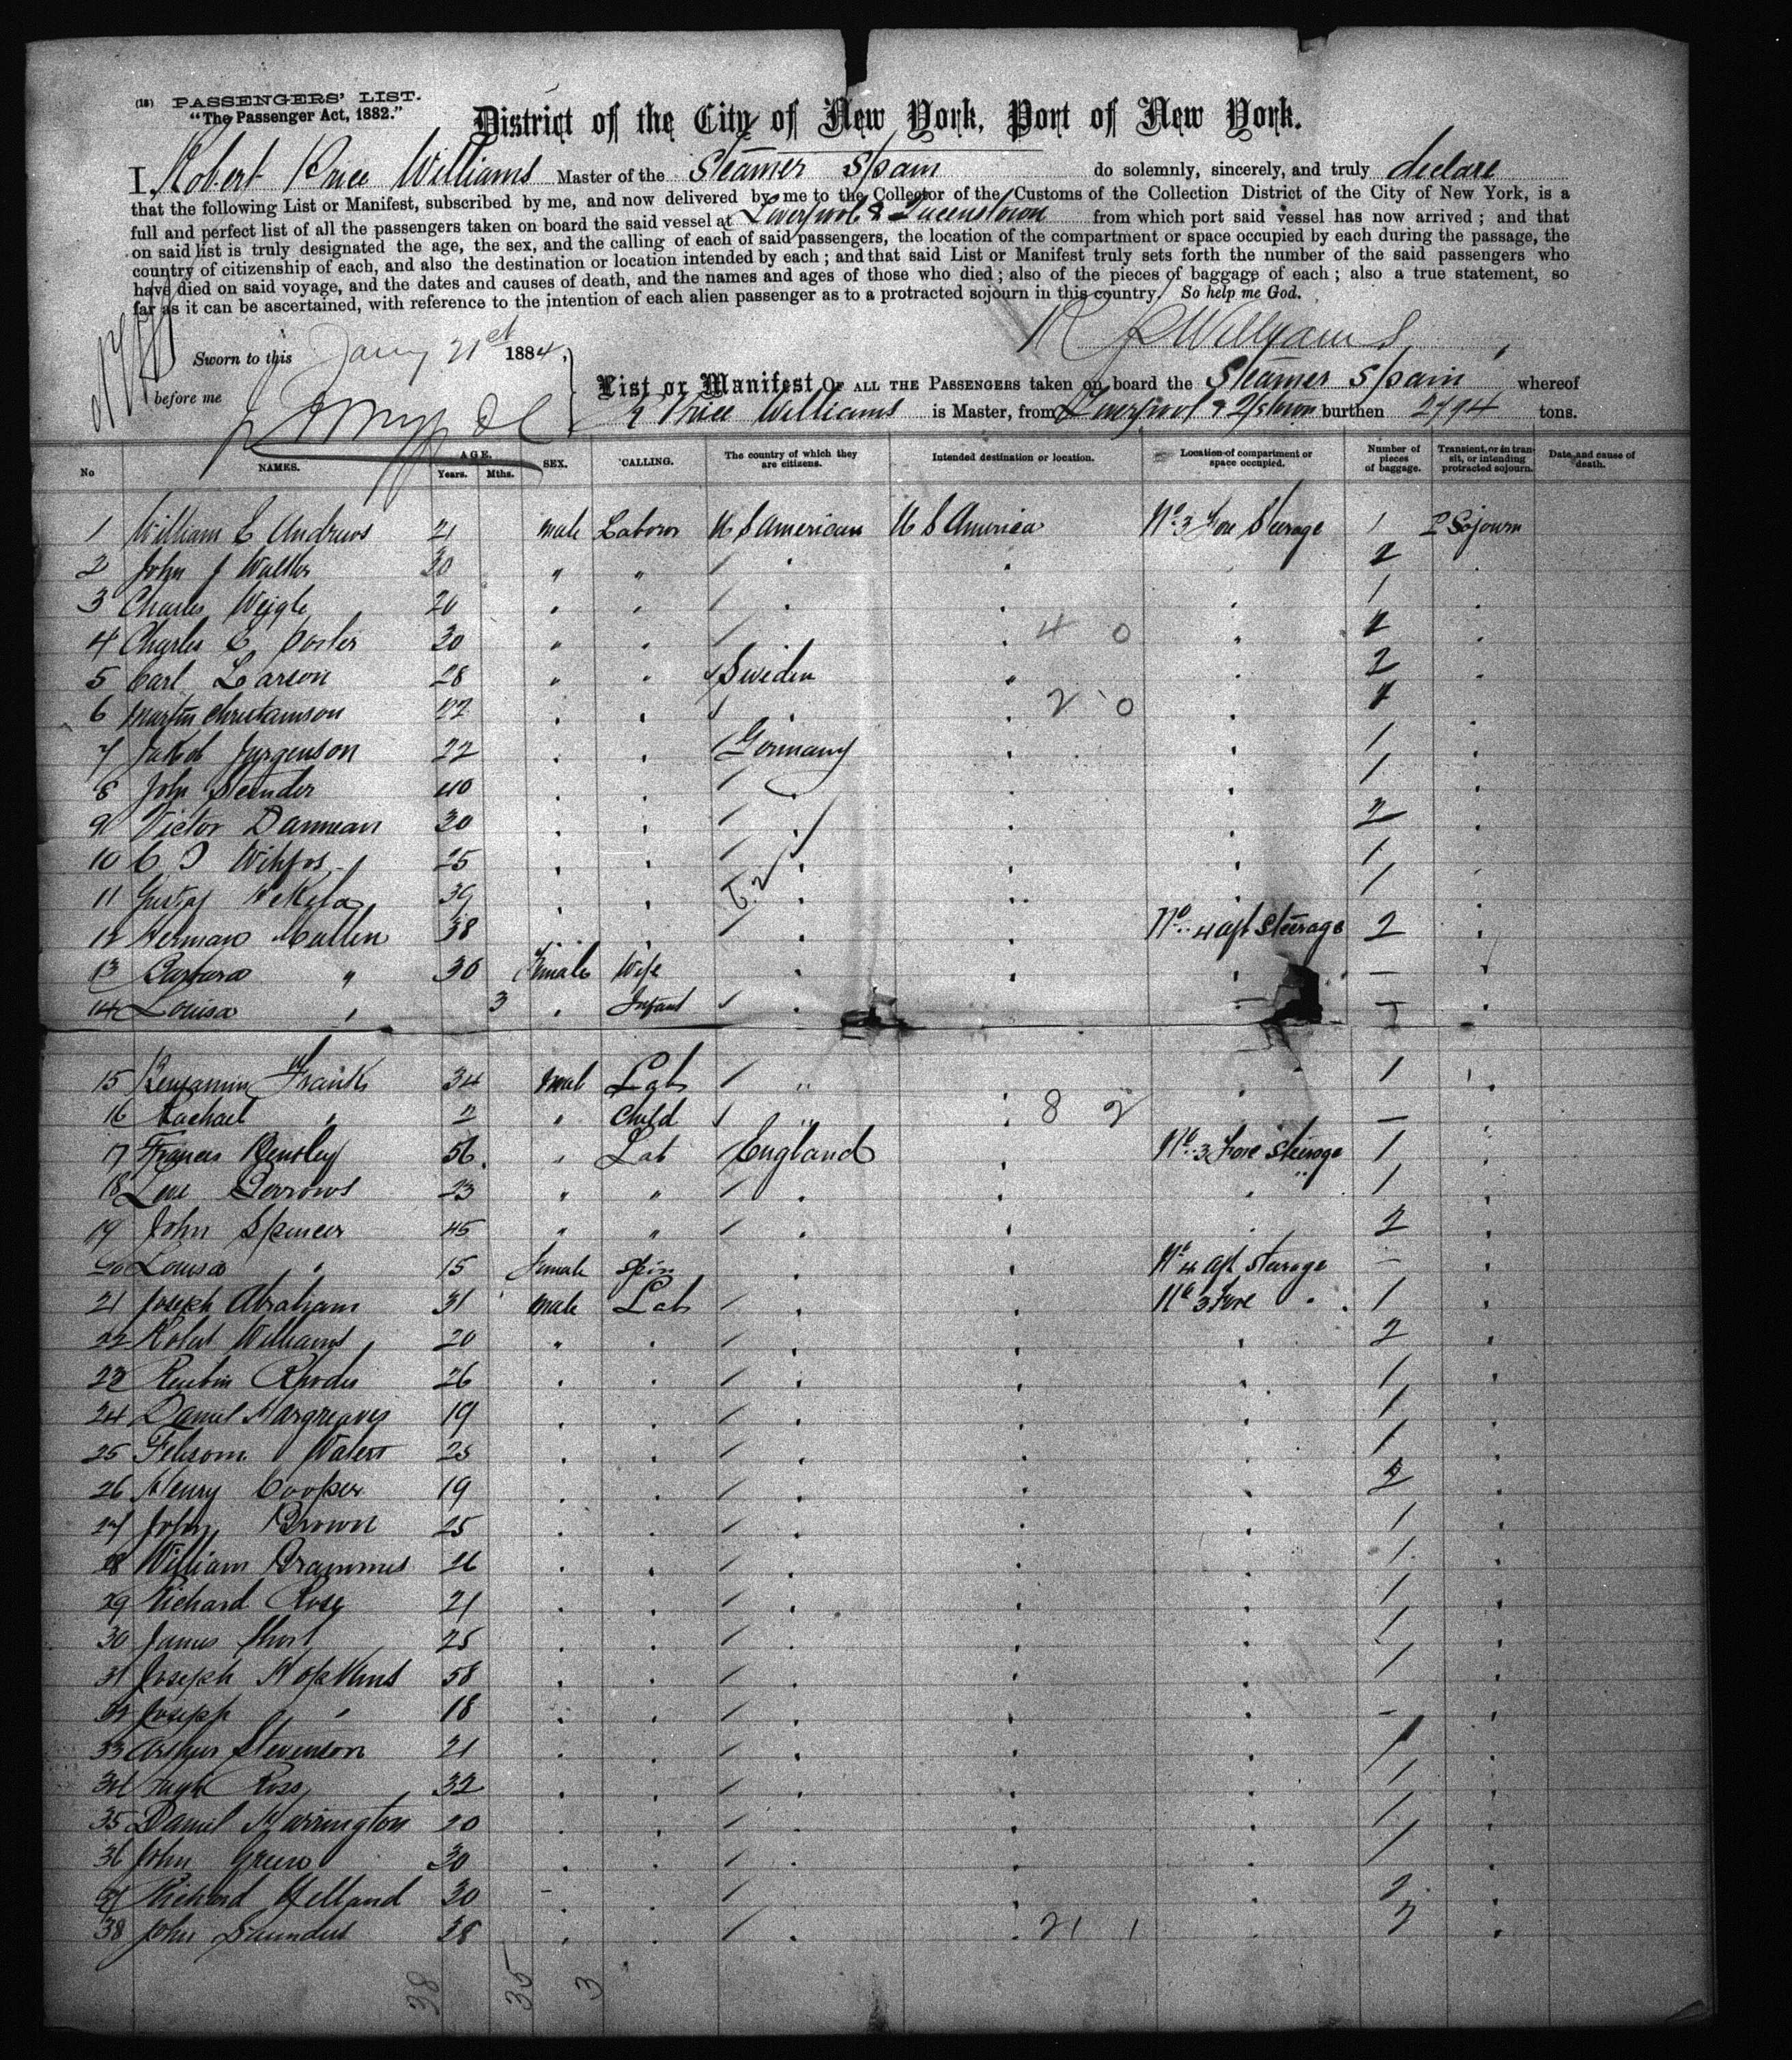 (18) PASSENGERS' LIST.
"The Passenger Act, 1882."
District of the City of New York, Port of New York.
I, Robert Price Williams Master of the Steamer Spain do solemnly, sincerely, and truly declare
that the following List or Manifest, subscribed by me, and now delivered by me to the Collector of the Customs of the Collection District of the City of New York, is a
full and perfect list of all the passengers taken on board the said vessel at Liverpool & Queenstown from which port said vessel has now arrived; and that
on said list is truly designated the age, the sex, and the calling of each of said passengers, the location of the compartment or space occupied by each during the passage, the
country of citizenship of each, and also the destination or location intended by each; and that said List or Manifest truly sets forth the number of the said passengers who
have died on said voyage, and the dates and causes of death, and the names and ages of those who died; also of the pieces of baggage of each; also a true statement, so
far as it can be ascertained, with reference to the intention of each alien passenger as to a protracted sojourn in this country. So help me God.
R P Williams
Sworn to this Jany 21st 1884,
before me
List or Manifest OF ALL THE PASSENGERS taken on board the Steamer Spain whereof
R Price Williams is Master, from Liverpool & Q/stown burthen 2794 tons.
No NAMES. AGE. Years. Mths. SEX. CALLING. The country of which they are citizens. Intended destination or location. Location of compartment or space occupied. Number of pieces of baggage. Transient, or in transit, or intending protracted sojourn. Date and cause of death.
1 William E Andrews 21 male Labour U S American U S America No. 3 Fore Steerage 1 P Sojourn
2 John J Walker 30 " " / 2
3 Charles Weigle 20 / 1
4 Charles E Porter 30 / 4 0 1
5 Carl Larson 28 " " Sweden 2
6 Martin Christianson 22 / 2 0 1
7 Jakob Jurgenson 22 / Germany 1
8 John Stender 40 / 1
9 Victor Damman 30 / 2
10 C 25 / 1
11 Gustaf 39 1
12 Herman Mullen 38 / No. 4 aft Steerage 2
13 Barbara " 30 Female Wife —
14 Louisa " 3 Infant / —
15 Benjamin Frank 34 male Lab / " 1
16 Rachael " 2 " Child / " 8 2 —
17 Francis Bensley 56 " Lab England No. 3 Fore Steerage 1
18 Levi Berrows 23 " " / 1
19 John Spencer 45 " " / 2
20 Louisa " 15 Female Spin No 4 aft Steerage —
21 Joseph Abraham 31 male Lab / No 3 Fore " 1
22 Robert Williams 20 " / 2
23 Reubin Rhodes 26 / 1
24 Daniel Hargreaves 19 / 1
25 Waters 25 / 1
26 Henry Cooper 19 / 2
27 John Brown 25 / 1
28 William Brammes 26 / 1
29 Richard Rose 21 / 1
30 James Short 25 / 1
31 Joseph Hopkins 58 / 1
32 Joseph " 18 / -
33 Arthur Stevenson 21 / 1
34 Hugh Ross 32 / 1
35 Daniel Harrington 20 / 1
36 John Green 30 / 1
37 Richard Yelland 30 / 2
38 John Saunders 28 / 21 1 2
38 35 3